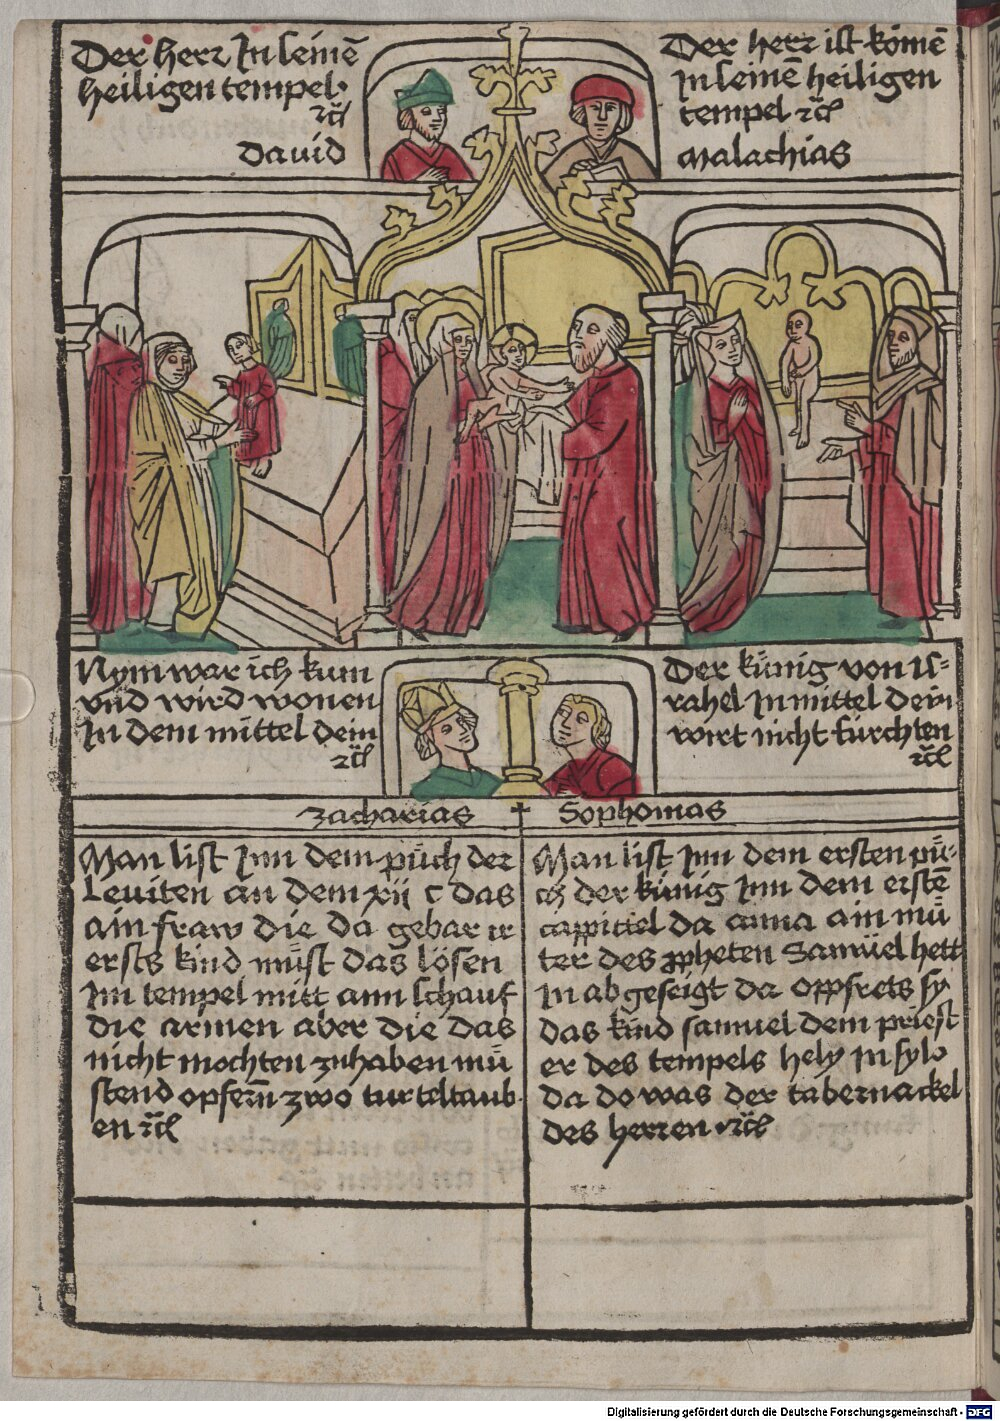 Der herr In seinē
heiligen tempel·
ꝛc̄
David
Der herr ist komē
In seinē heiligen
tempel ꝛc̄
Malachias
Nym war ich kum
vnd wird wonen
In dem mittel dein
ꝛc̄
Der künig von Is-
rahel In mittel dein
wirt nicht fürchten
ꝛc̄
Zacharias
Sophonias
Man list Inn dem püch der
Leviten an dem xij c das
ain fraw die da gebar ir
ersts kind müst das lösen
Im tempel mitt aim schauf
die armen aber die das
nicht mochten zuhaben mü
stend opfern zwo turteltaub
en ꝛc̄
Man list Inn dem ersten pü-
ch der künig Inn dem erstē
cappittel da anna ain mü
ter des ꝓpheten Samüel hett
In abgeseigt da oppfrets sy
das kind samuel dem priest
er des tempels hely In sylo
da do was der tabernackel
des herren ꝛc̄
Digitalisierung gefördert durch die Deutsche Forschungsgemeinschaft - DFG